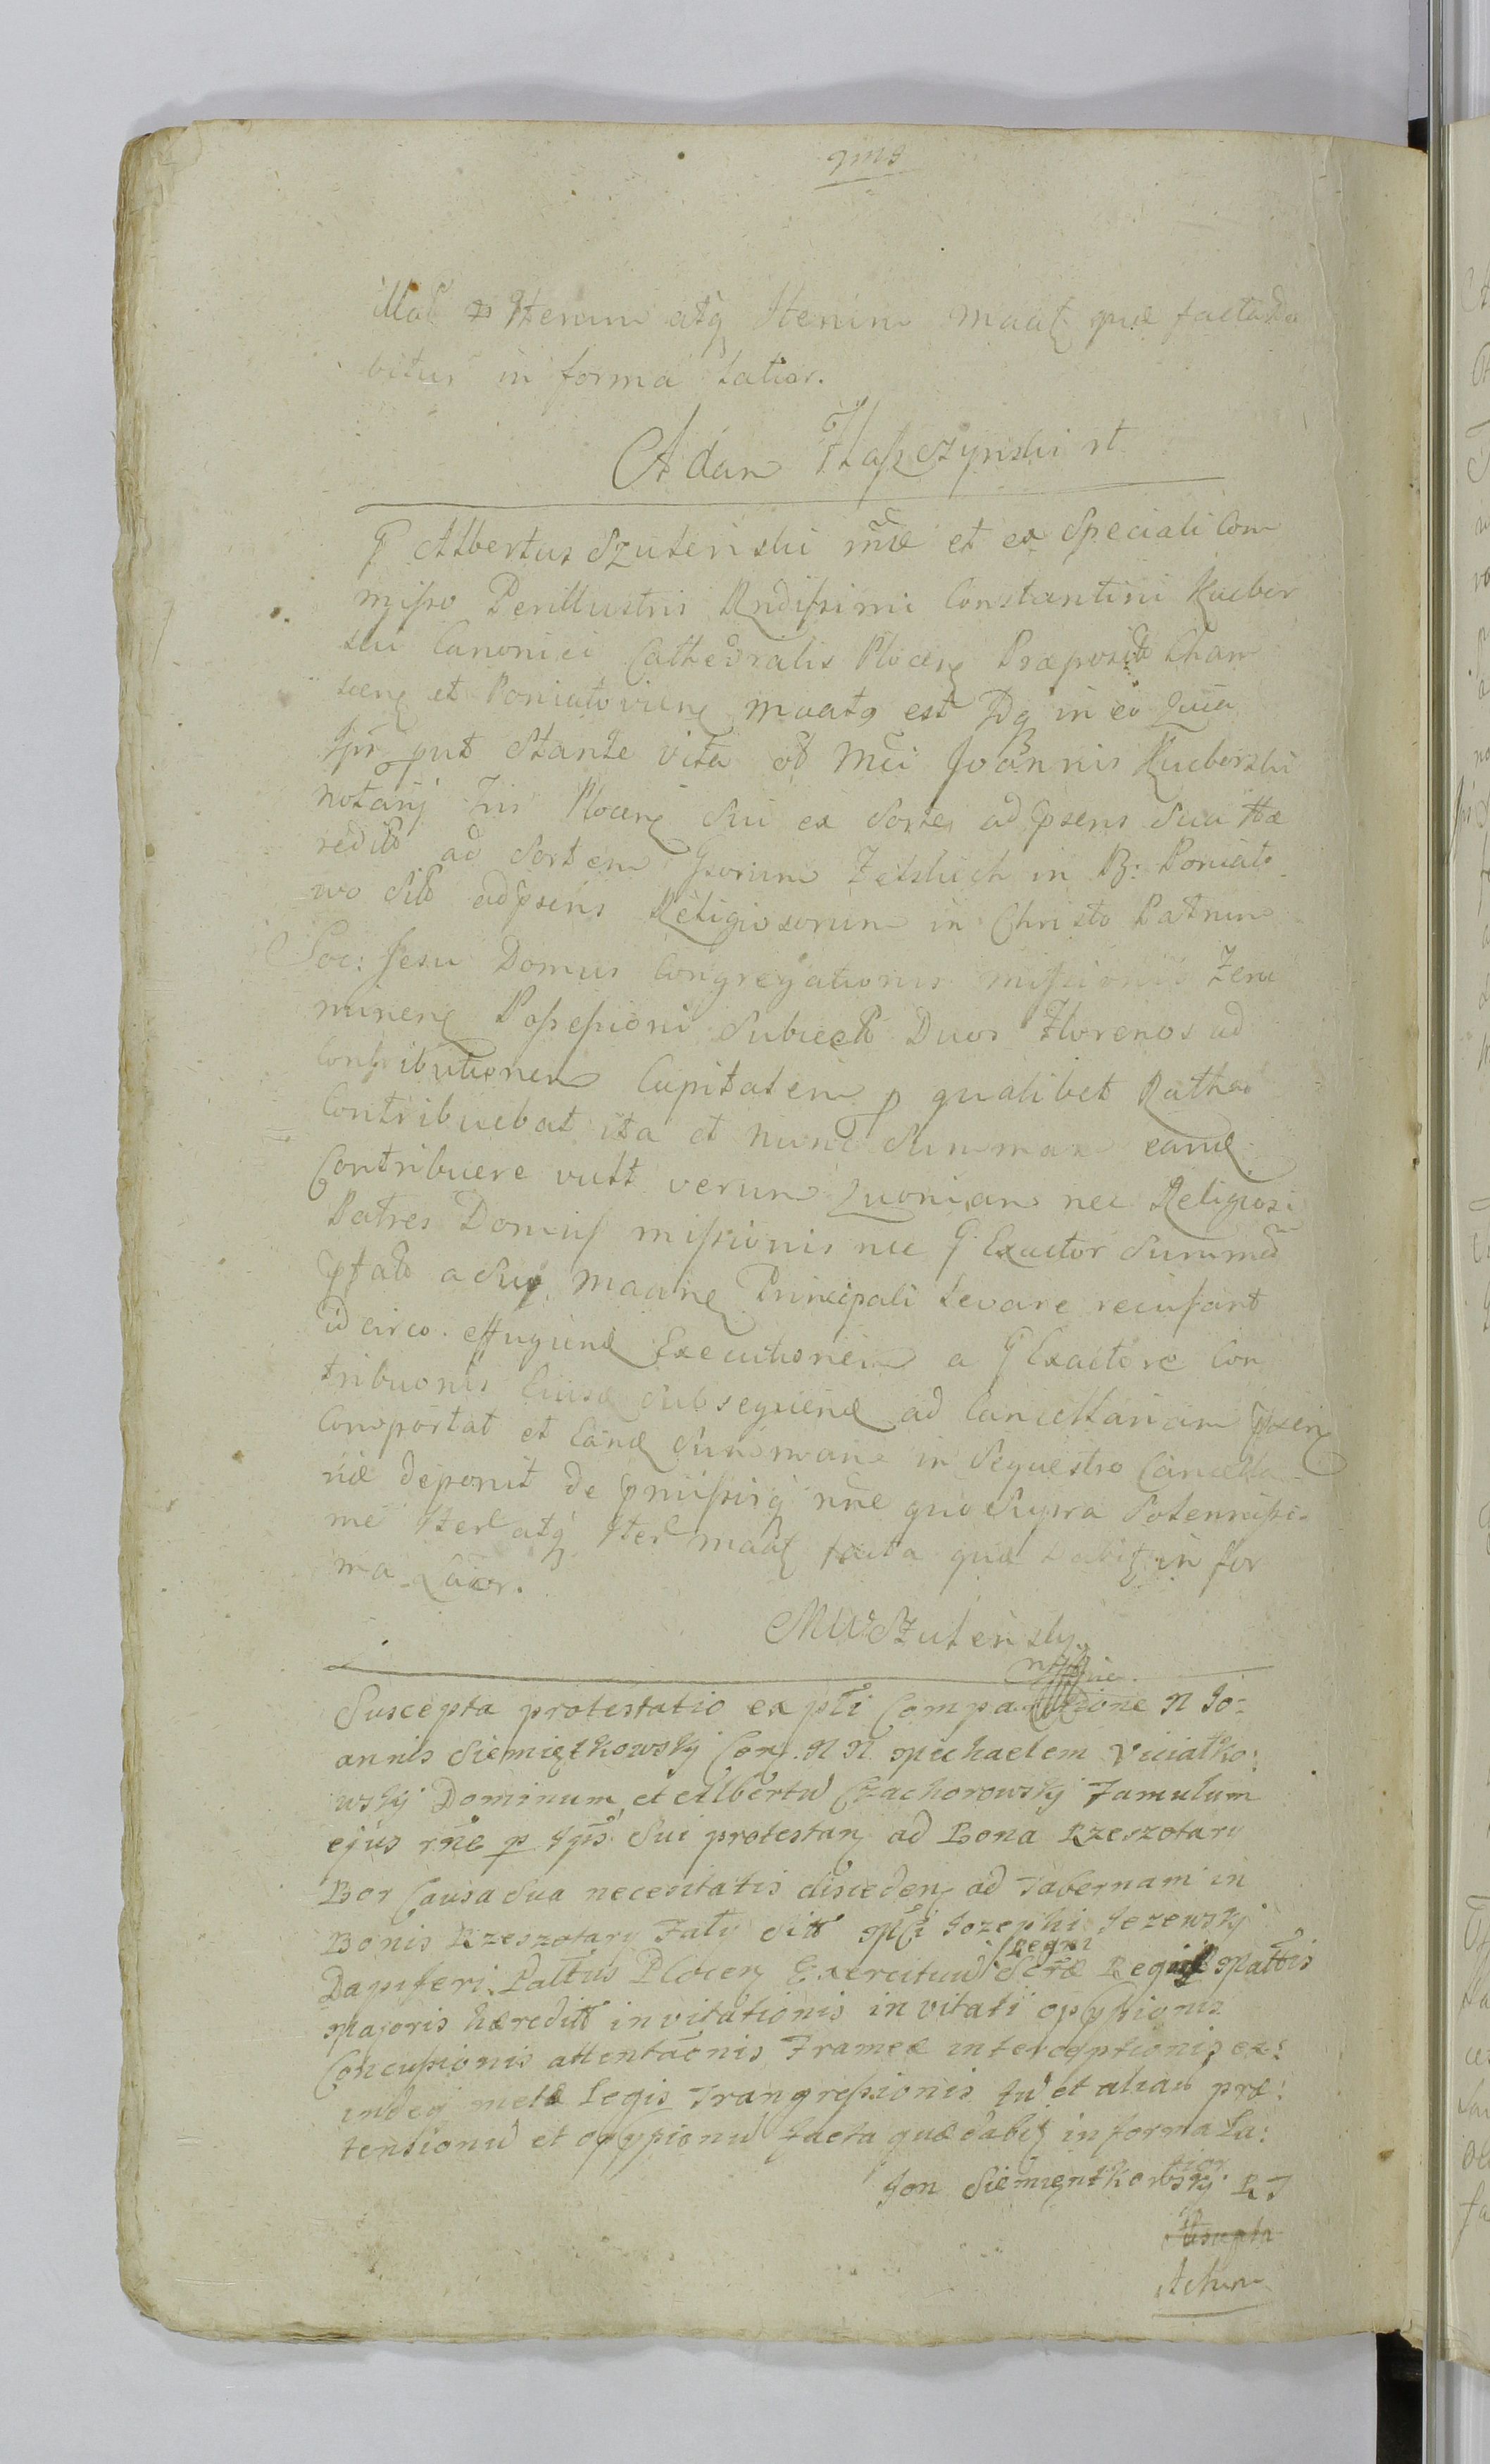 gms
illat Iterum atq Iterum maat quæ facta da
bitur in forma latior.
Adam
G Albertus Szuterishi rñæ et ex Speciali Com
mißo Perillustris Rndißimi Constantini Kuebor
shi Canonici Cathedralis Plocen Præposit
et Poniatovien maatq est Idq in eo Quia
Ipñ put Stante vita ol Mci Joannis Kueborshi
notarij Plocen Sui ex Sorte adpsens Sua Hæ
redit ad Sortem Gsorum Zelshich in B: Poniato
wo Sit adpsens Religiosorum in Christo Patrum
Soc: Jesu Domus Congregationis mißionis Zero
minen Poßeßioni Subiect Duos Florenos ad
Contributionem Capitalem p qualibet Ratha
Contribuebat ita et nunc Summam eand
Contribuere vult verum Quoniam nec Religiosi
Patres Domus mißionis nec G Exactor Summã
pfat a Suo maane Principali levare recusant
idcirco effugiend Executionem a G Exactore Con
tribuonis Ejusd Subsequend ad Cancellariam psen
Comportat et Eand Summam in Sequestro Cancella
riæ deponit de pmißisq rñe quo Supra Solennißi
me Iter atq Iter maat facta quæ dabit in for
ma Latior.
Szuterisky
Suscepta protestatio ex pti Compa one N Jo-
annis Siemiętkowskj Con N N Michaelem Viciatko:
wskj Dominum et Albertu Czachorowskj Famulum
ejus rñe p Ips Sui protestan ad Bona Rzeszotary
Bor Causa Sua necesitatis disceden ad Tabernam in
Bonis Rzeszotary Faty Sitt Mci Jozephi Jezewskj
Regni
Dapiferi Palttus Plocen Exercituu Sctæ Mattis
Majoris hæreditt invitationis in vitali oppßionis
Concußionis attentaonis Frameæ interceptionis ex:
indeq metæ Legis Trangreßionis tu et aliaru præ:
tensionu et oppßionu facta quæ dabit in forma La:
tior
Jon Siemięntkowskj
Actum